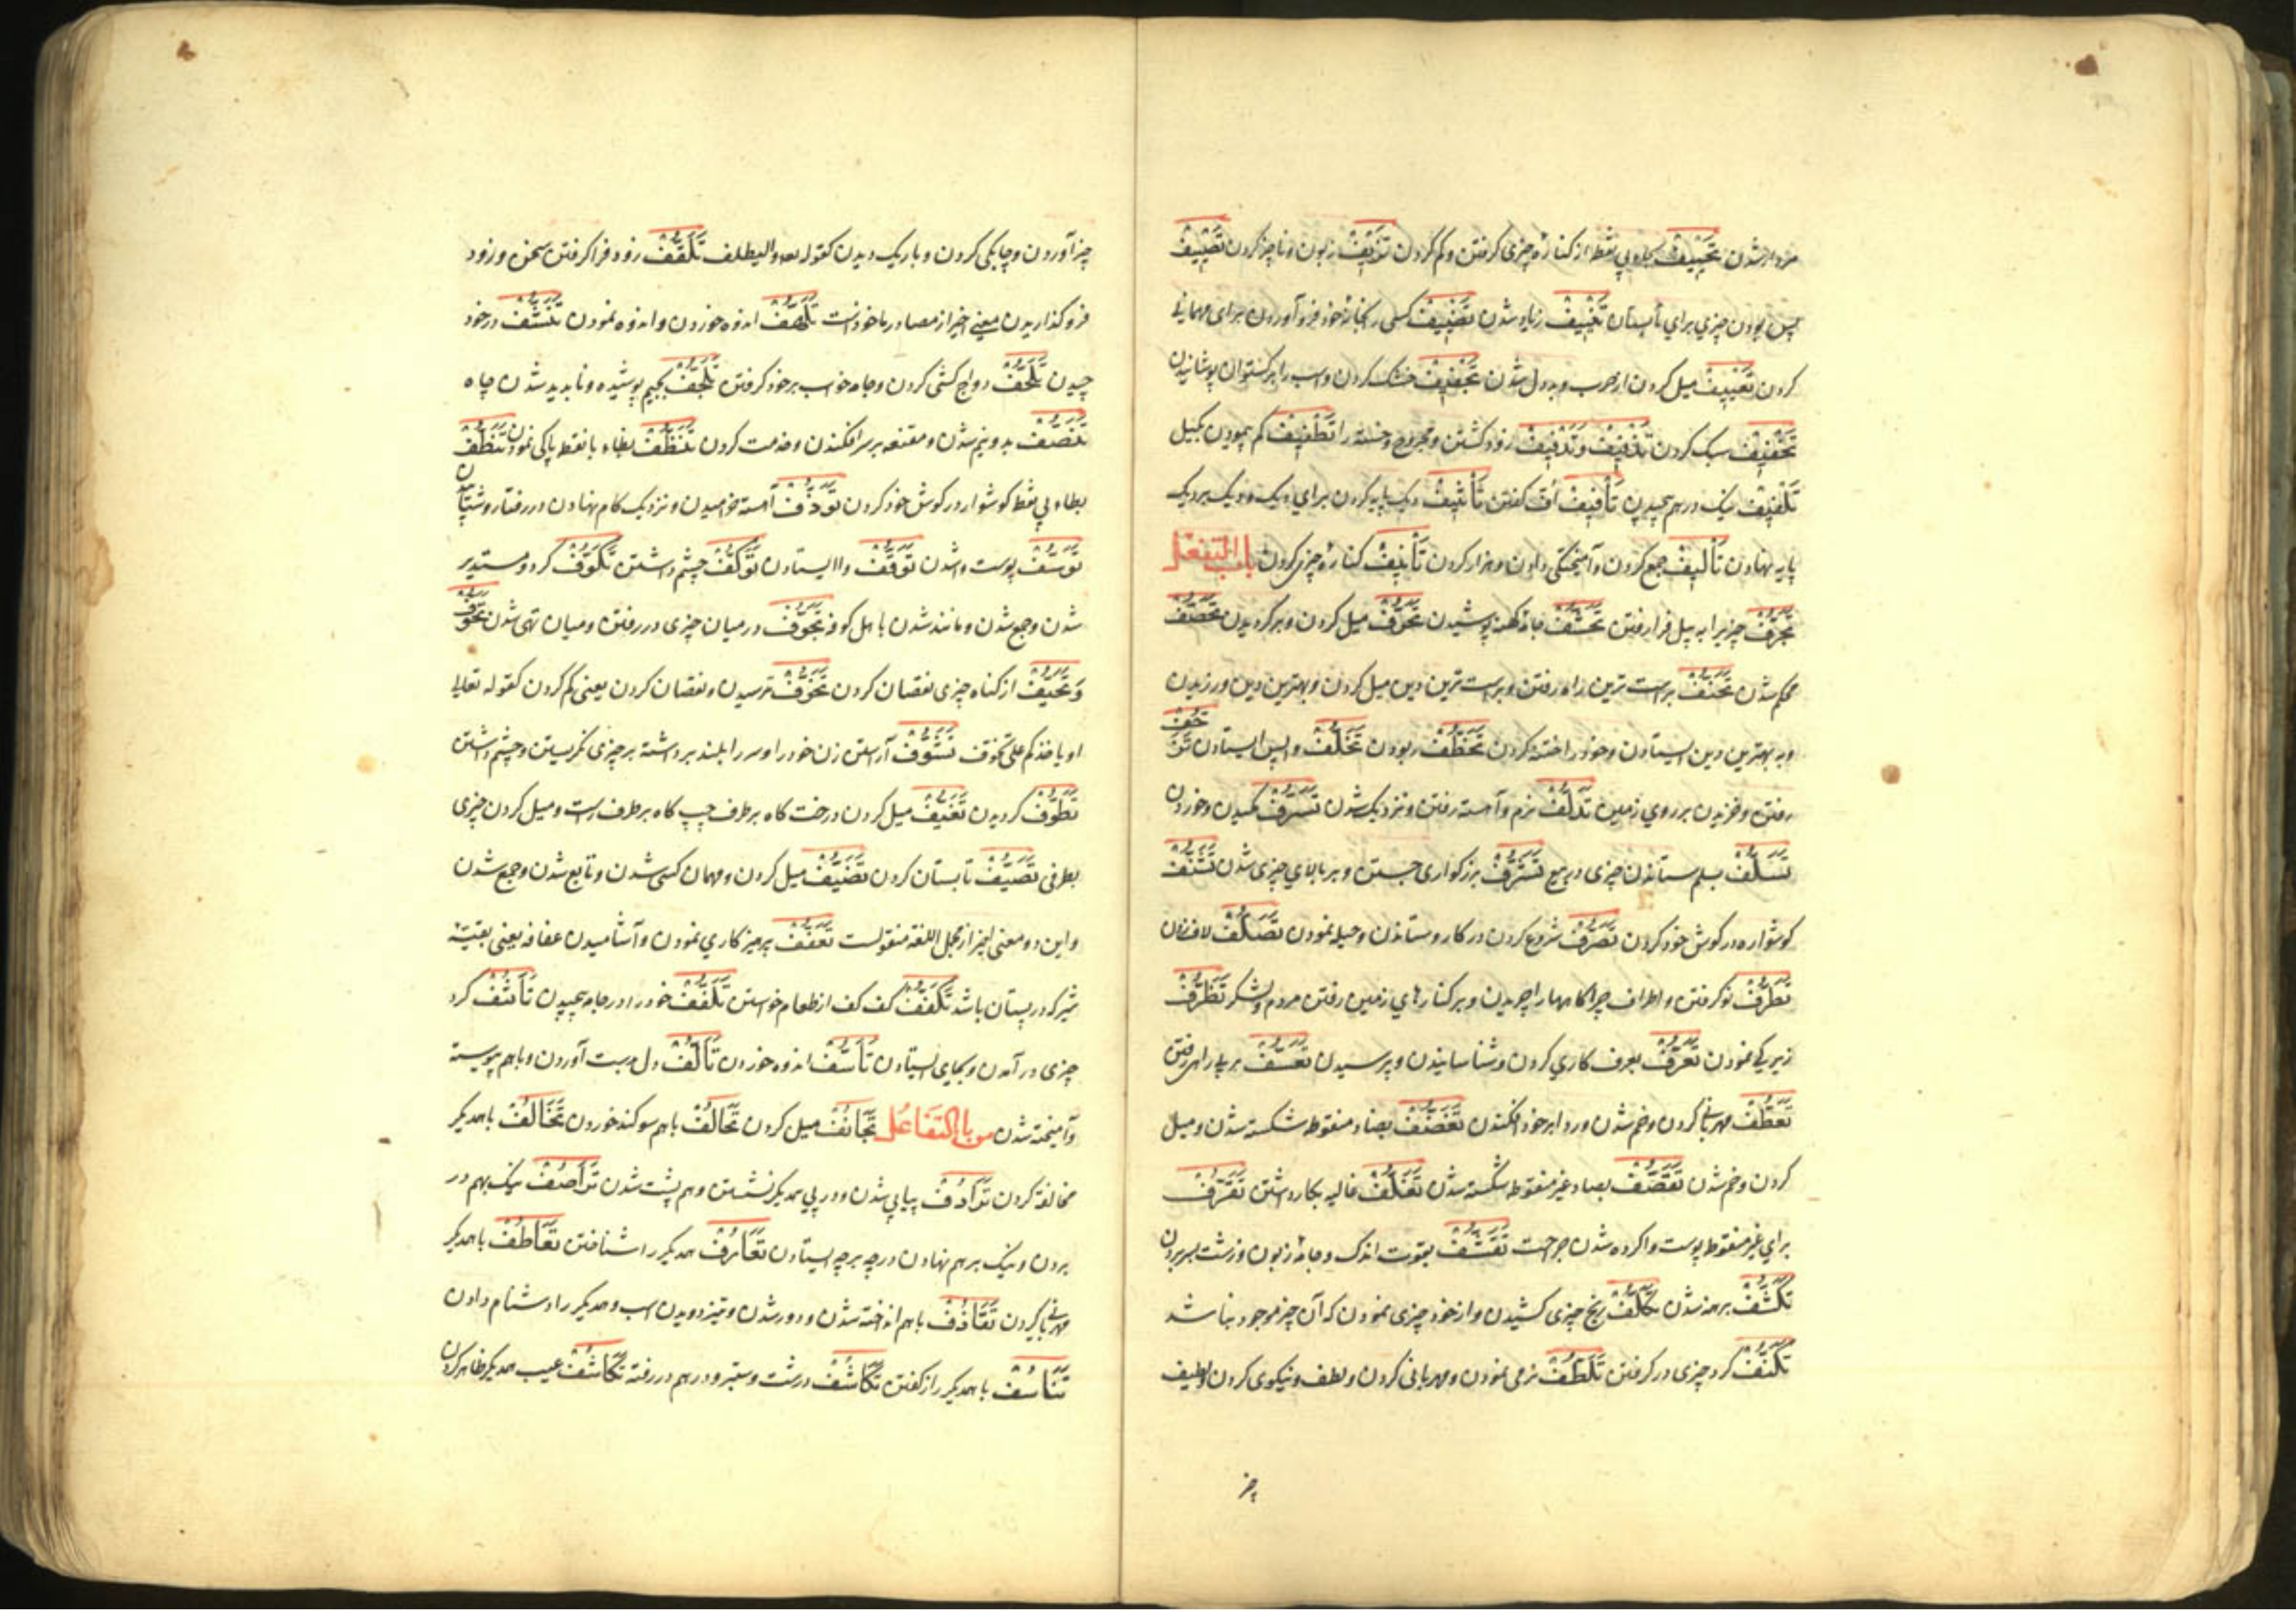 مردار شدن تحییف بحاء بی نقط از کناره چیزی کرفتن و کم کردن تزییف زبون و ناچیز کردن تصییف
بس بودن چیزی برای تابستان تضییف زیاده شدن تضییف کسی را بخانۀ خود فرو آوردن برای مهمانی
کردن تعییف میل کردن از حرب و بددل شدن تجفیف خشک کردن و اسب را برکستوان پوشانیدن
تخفیف سبک کردن تذفیف و تدفیف زود کشتن مجروح و خسته را تطفیف کم پیمودن بکیل
تلفیف نیک در هم پیچیدن تافیف اف کفتن تاثیف دیک پایه کردن برای دیک و دیک بر دیک
پایه نهادن تالیف جمع کردن و آمیختکی دادن و هزار کردن تانیف کناره چیزی کردن باب التفعل
تجرف چیزیرا به بیل فرا رفتن تحشف جامۀ کهنه پوشیدن تحرف میل کردن و برکردیدن تحصف
محکم شدن تحنف براست ترین راه رفتن و براست ترین دین میل کردن و بهترین دین ورزیدن
و به بهترین دین ایستادن و خود را ختنه کردن تخطف ربودن تخلف واپس ایستادن تزحف
رفتن و خزیدن بر روی زمین تدلف نرم و آهسته رفتن و نزدیک شدن تسرف مکیدن و خوردن
تسلف بسلم ستاندن چیزی در بیع تشرف بزرکواری جستن و بر بالای چیزی شدن تشنف
کوشواره در کوش خود کردن تصرف شروع کردن در کار و ستاندن و حیله نمودن تصلف لاف زدن
تطرف نو کرفتن و اطراف چراکاهها را چریدن و بر کنارهای زمین رفتن مردم و لشکر تظرف
زیرکی نمودن تعرف بعرف کاری کردن و شناسانیدن و پرسیدن تعسف بر بی راهی رفتن
تعطف مهربانی کردن و خم شدن و ردا بر خود افکندن تغضف بضاد منقوطه شکسته شدن و میل
کردن و خم شدن تقصف بصاد غیر منقوطه شکسته شدن تغلف غالیه بکار داشتن تقرف
برای غیر منقوط پوست واکرده شدن جراحت تقشف بقوت اندک و جامۀ زبون و زشت بسر بردن
تکشف برهنه شدن تکلف رنج چیزی کشیدن و از خود چیزی نمودن که آن چیز موجود نباشد
تکنف کرد چیزی در کرفتن تلطف نرمی نمودن و مهربانی کردن و لطف و نیکوی کردن و لطیف
چیز
چیز آوردن و چابکی کردن و باریک دیدن کقوله تع ولیتلطف تلقف زود فرا کرفتن سخن و زود
فرو کذاریدن معنی اخیر از مصادر ماخوذست تلهف اندوه خوردن و اندوه نمودن تنشف در خود
چیدن تلحف دواج کشی کردن و جامه خواب بر خود کرفتن تلجف بجیم پوشیده و ناپدید شدن چاه
تنصف بدو نیم شدن و مقنعه بر سر افکندن و خدمت کردن تنظف بظاء با نقطه پاکی نمودن تنطف
بطاء بی نقط کوشوار در کوش خود کردن توذف آهسته خرامیدن و نزدیک کام نهادن در رفتار و شتاب
توسف پوست واشدن توقف واایستادن توکف چشم داشتن تکوف کرد و مستدیر
شدن و جمع شدن و مانند شدن با اهل کوفه تجوف در میان چیزی در رفتن و میان تهی شدن تحوف
و تحیف از کناه چیزی نقصان کردن تخوف ترسیدن و نقصان کردن یعنی کم کردن کقوله تعالی
او یاخذکم علی تخوف تشوف آراستن زن خود را و سر را بلند برداشته بر چیزی نکریستن و چشم داشتن
تطوف کردیدن تغیف میل کردن درخت کاه بر طرف چپ کاه بر طرف راست و میل کردن چیزی
بطرفی تصیف تابستان کردن تضیف میل کردن و مهمان کسی شدن و تابع شدن و جمع شدن
و این دو معنی اخیر از مجمل اللغة منقولست تعفف پرهیزکاری نمودن و آشامیدن عفافه یعنی بقیۀ
شیر که در پستان باشد تکفف کف کف از طعام خواستن تلفف خود را در جامه پیچیدن تاثف کرد
چیزی در آمدن و بجای ایستادن تاسف اندوه خوردن تالف دل بدست آوردن و باهم پیوسته
و آمیخته شدن من باب التفاعل تجانف میل کردن تحالف باهم سوکند خوردن تخالف با همدیکر
مخالفة کردن ترادف پیاپی شدن و در پی همدیکر نشستن و هم پشت شدن تراصف نیک بهم در
بردن و نیک بر هم نهادن و رجه برجه ایستادن تعارف همدیکر را شناختن تعاطف با همدیکر
مهربانی کردن تقاذف باهم انداخته شدن و دور شدن و تیز دویدن اسب و همدیکر را دشنام دادن
با همدیکر راز کفتن تکاثف درشت و ستبر و در هم در رفته تکاشف عیب همدیکر ظاهر کردن